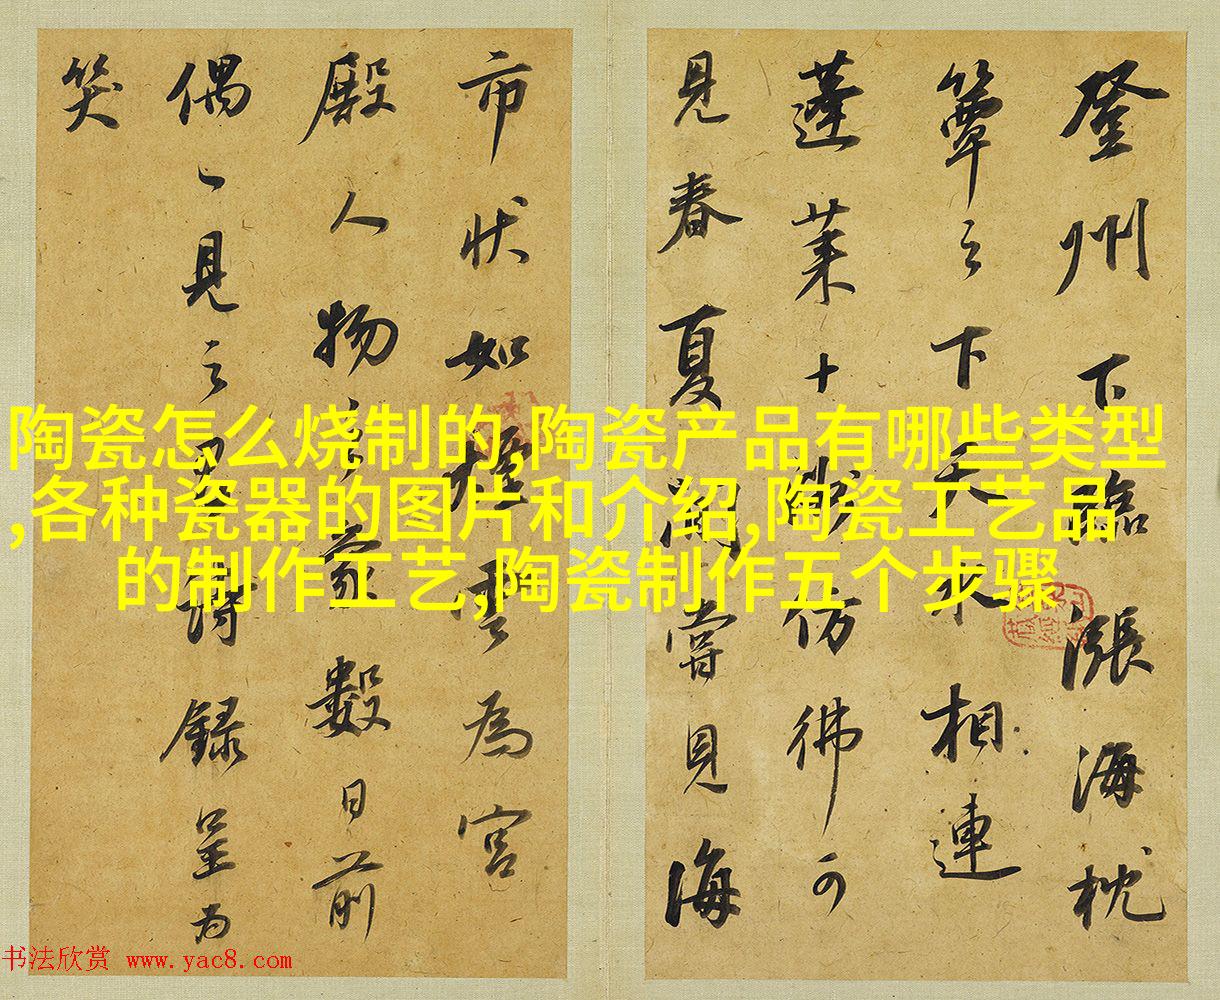 登州下臨漲海枕
簟之下天水相連
蓬萊十數仿彿可
見春夏間嘗見海
市狀如雲為宮
殿人物數日前
偶一見之詩錄呈為
笑
陶瓷怎么烧制的,陶瓷产品有哪些类型
,各种瓷器的图片和介绍,陶瓷工艺品
的制作工艺,陶瓷制作五个步骤
书法欣赏 www.yac8.com